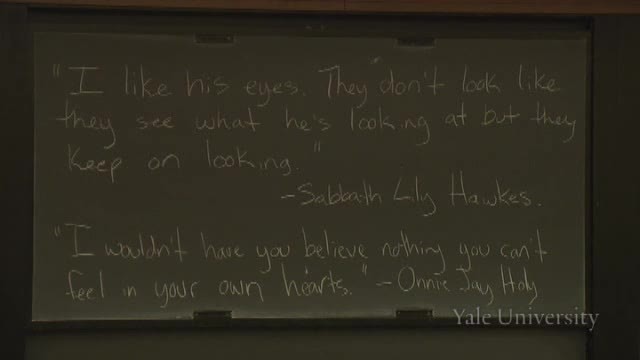 "I like his eyes. They don't look like
they see what he's looking at but they
keep on looking."
-Sabbath Lily Hawkes.
"I wouldn't have you believe nothing you can't
feel in your own hearts." - Onnie Jay Holy
Yale University